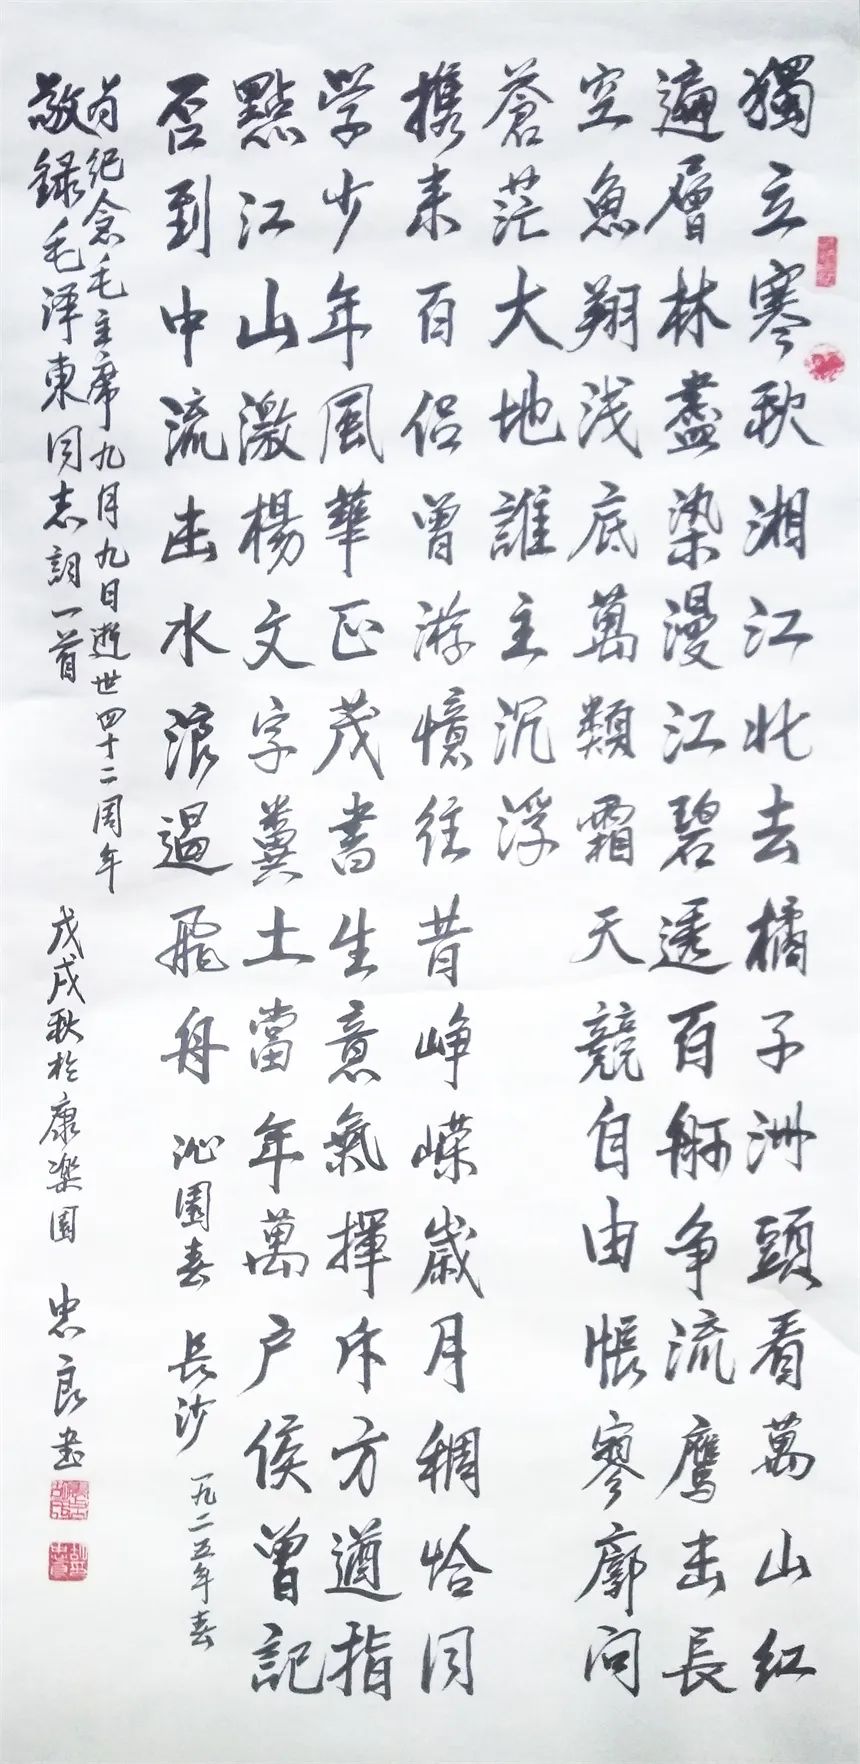 獨立寒秋湘江北去橘子洲頭看萬山红
遍層林盡染漫江碧透百舸争流鹰击長
空魚翔浅底萬類霜天競自由悵寥廓问
蒼茫大地誰主沉浮
携来百侣曾游憶往昔峥嵘歲月稠恰同
学少年風華正茂書生意氣揮斥方遒指
點江山激楊文字糞土當年萬户侯曾記
否到中流击水浪遏飛舟 沁園春 長沙 一九二五年春
为纪念毛主席九月九日逝世四十二周年
敬録毛泽東同志詞一首 戊戌秋於康楽園 忠良书